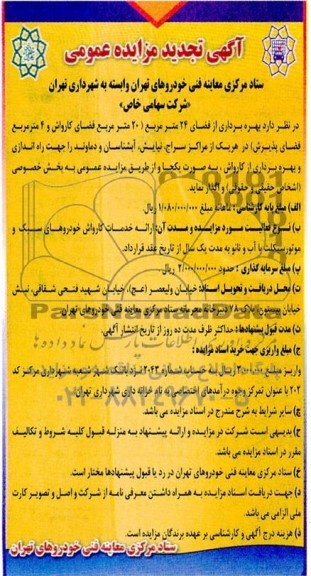 آگهی تجدید مزایده عمومی
ستاد مرکزی معاینه فنی خودروهای تهران وابسته به شهرداری تهران
«شرکت سهامی خاص»
در نظر دارد بهره برداری از فضای ۲۴ متر مربع (۲۰ متر مربع فضای کارواش و ۴ مترمربع
فضای پذیرش) در هریک از مراکز سراج، نیایش، آبشناسان و دماوند را جهت راه اندازی
و بهره برداری از کارواش، به صورت یکجا و از طریق مزایده عمومی به بخش خصوصی
(اشخاص حقیقی و حقوقی) واگذار نماید.
الف) مبلغ پایه کارشناسی: ماهانه مبلغ ۱/۰۸۰/۰۰۰/۰۰۰ ریال
ب) نوع فعالیت مورد مزایده و مدت آن: ارائه خدمات کارواش خودروهای سبک و
موتورسیکلت با آب و نانو به مدت یک سال از تاریخ عقد قرارداد.
پ) مبلغ سرمایه گذاری: حدود ۲/۰۰۰/۰۰۰/۰۰۰ ریال.
ت) محل دریافت و تحویل اسناد: خیابان ولیعصر (عج)، خیابان شهید فتحی شقاقی، نبش
خیابان بیستون، پلاک دبیرخانه محرمانه ستاد مرکزی معاینه فنی خودروهای تهران
ث) مدت قبول پیشنهادها: حداکثر ظرف مدت ده روز از تاریخ انتشار آگهی.
ج) مبلغ واریزی جهت خرید اسناد مزایده:
واریز مبلغ ریال به حساب شماره نزد بانک شعبه شهرداری مرکز کد
۲۰۲ با عنوان تمرکز وجوه درآمدهای اختصاصی به نام خزانه داری شهرداری تهران
چ) سایر شرایط به شرح مندرج در اسناد مزایده می باشد.
ح) بدیهی است شرکت در مزایده و ارائه پیشنهاد به منزله قبول کلیه شروط و تکالیف
مقرر در اسناد مزایده می باشد.
خ) ستاد مرکزی معاینه فنی خودروهای تهران در رد یا قبول پیشنهادها مختار است.
د) جهت دریافت اسناد مزایده به همراه داشتن معرفی نامه از شرکت و اصل و تصویر کارت
ملی الزامی می باشد.
ذ) هزینه درج آگهی و کارشناسی بر عهده برندگان مزایده است.
ستاد مرکزی معاینه فنی خودروهای تهران